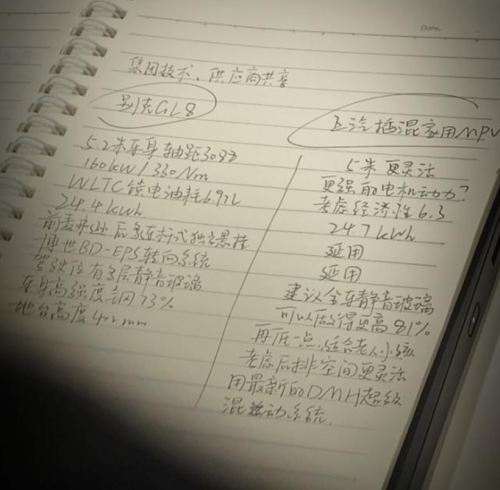 集团技术、供应商共享
别克GL8
5.2米车身 轴距30
160kW/330Nm
WLTC馈电油耗6.97L
24.4kWh
前麦弗逊 后多连杆式独立悬挂
博世BD-EPS转向系统
驾驶位有多层静音玻璃
车身高强度钢 73%
地台高度 mm
上汽插混家用MPV
5米 更灵活
更强的电机动力?
考虑经济性 6.3
24.7kWh
延用
延用
建议全车静音玻璃
可以做得更高 81%
再低一点,结合老人小孩
考虑后排空间更灵活
用最新的DMH超级
混动系统